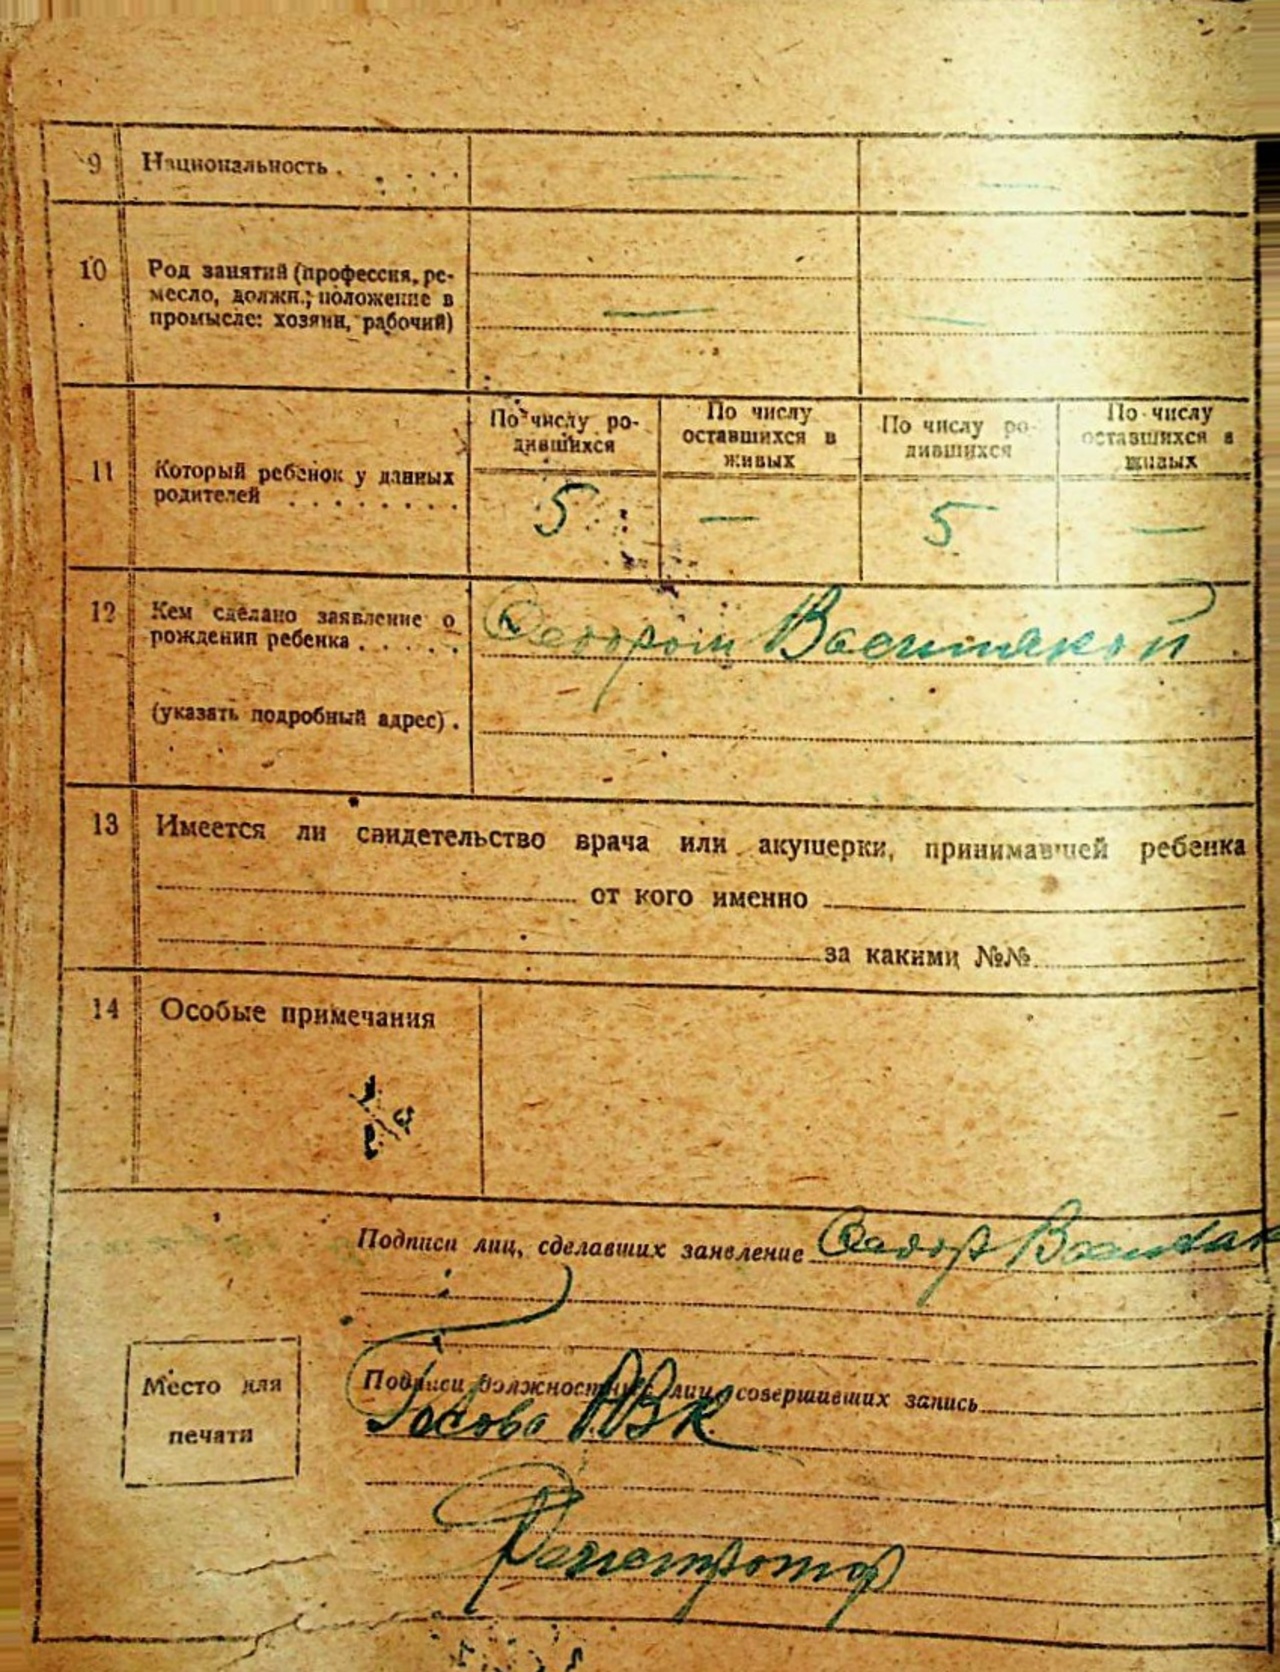 9 Национальность . . . . . — —
10 Род занятий (профессия, ре-
месло, должн.; положение в
промысле: хозяин, рабочий) — —
11 Который ребенок у данных
родителей . . . . . . . .
По числу ро-
дившихся
По числу
оставшихся в
живых
По числу ро-
дившихся
По числу
оставшихся в
живых
5 — 5 —
12 Кем сделано заявление о
рождении ребенка . . . . .
(указать подробный адрес) .
13 Имеется ли свидетельство врача или акушерки, принимавшей ребенка
от кого именно
за какими №№
14 Особые примечания
Подписи лиц, сделавших заявление
Место для
печати
Подписи должностных лиц, совершивших запись